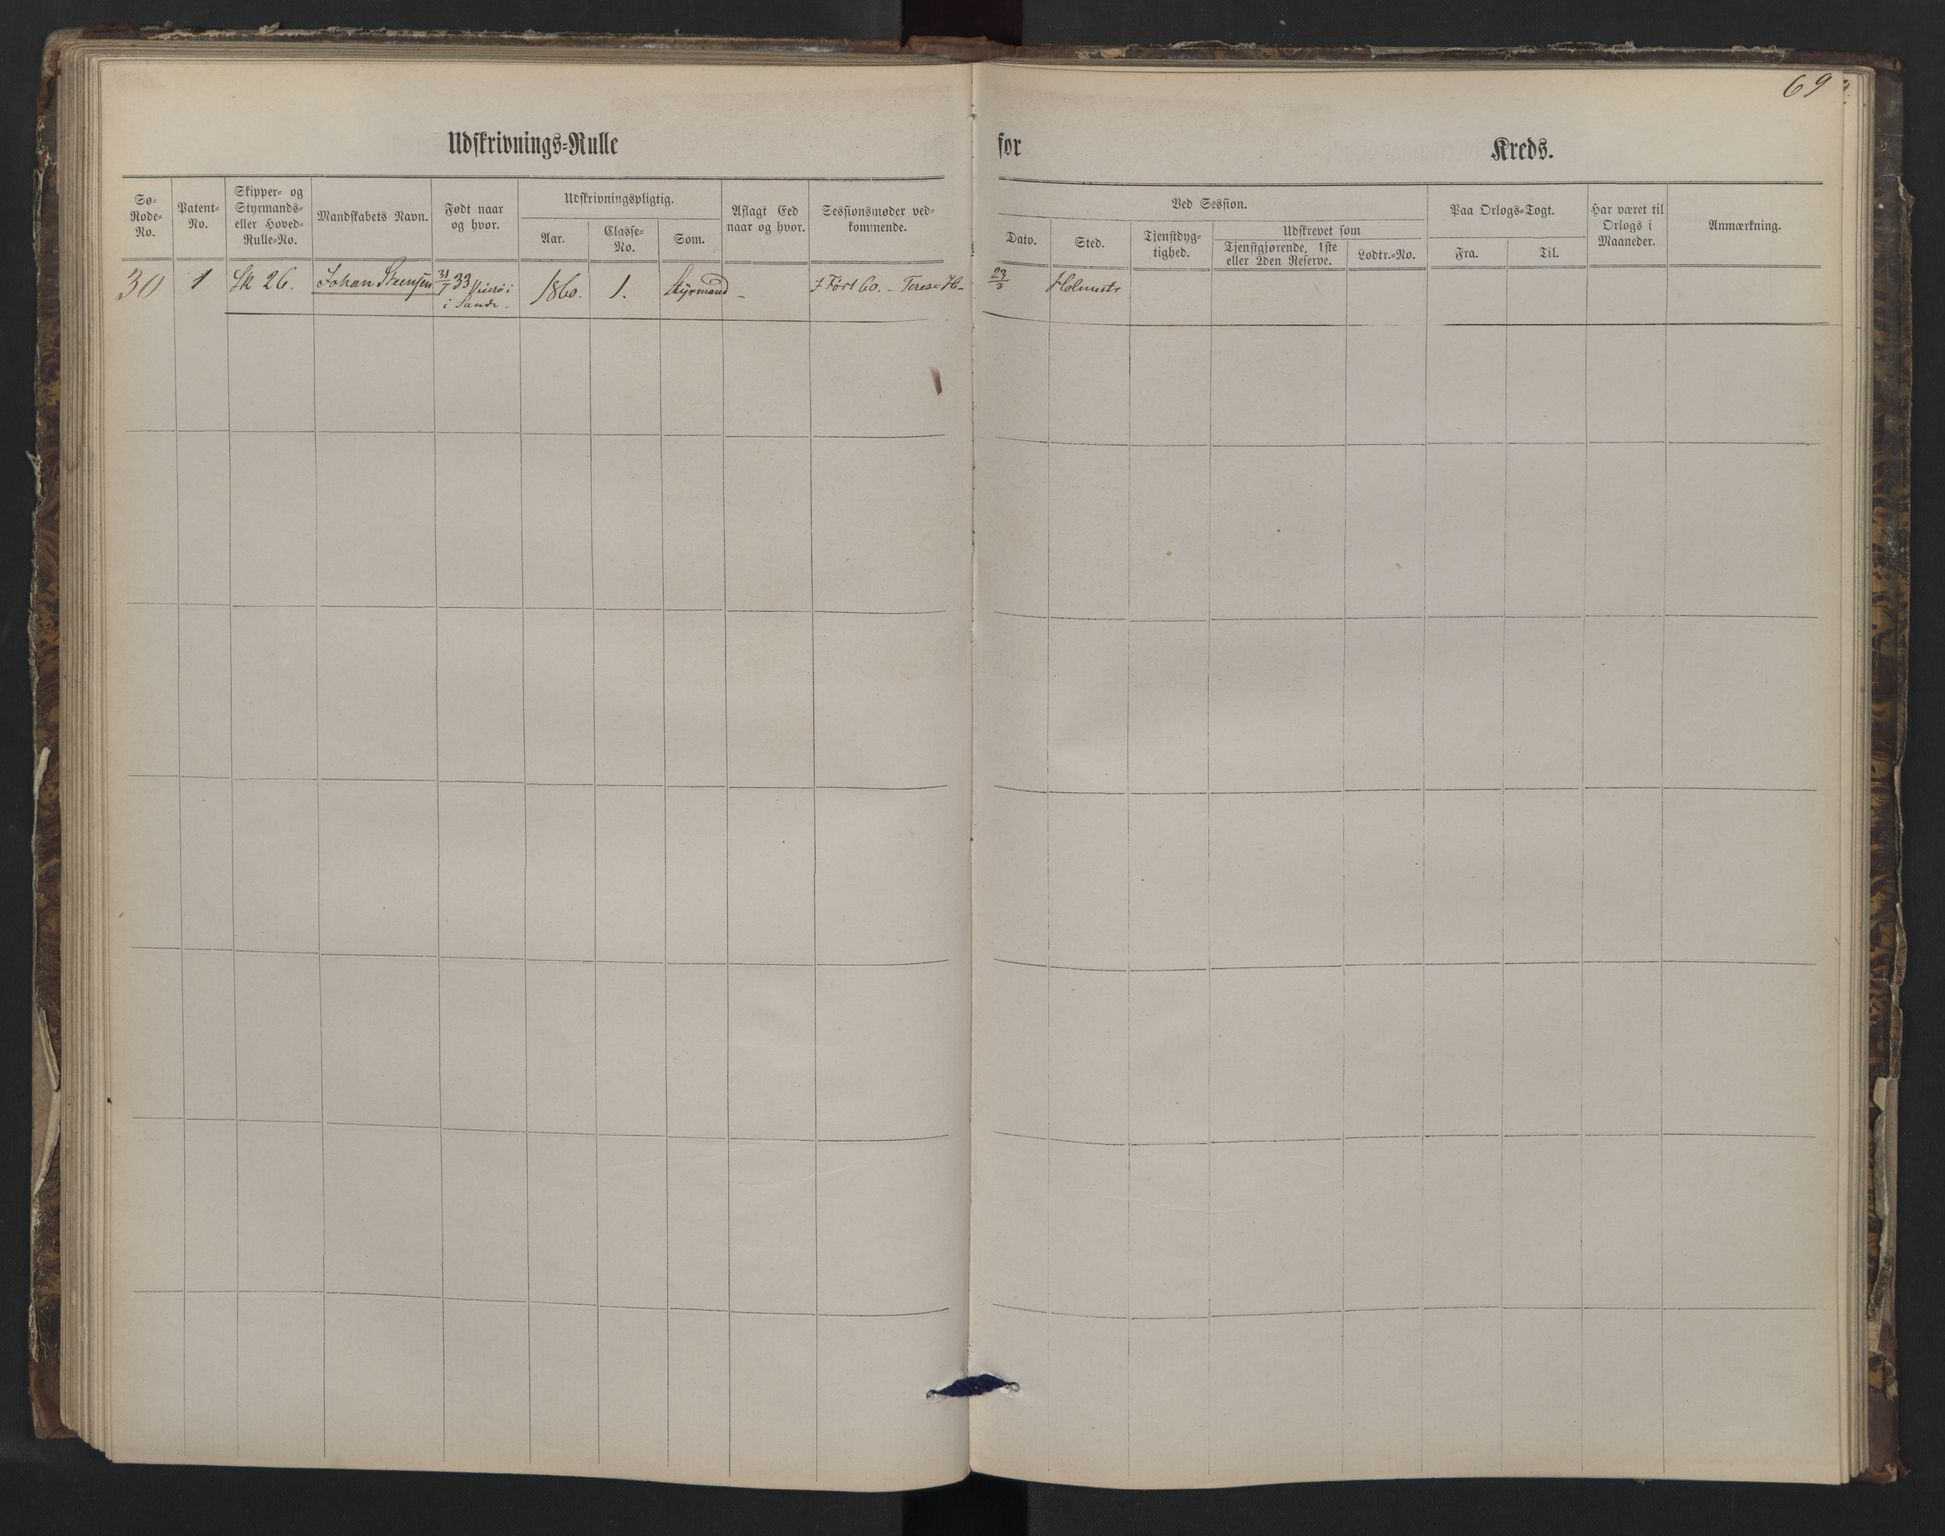 69
Udskrivnings=Rulle for Kreds.
Sø-
Rode-
No.
Patent-
No.
Skipper- og
Styrmands-
eller Hoved-
Rulle-No.
Mandskabets Navn.
Født naar
og hvor.
Udskrivningspligtig.
Aar.
Classe-
No.
Som.
Aflagt Eed
naar og hvor.
Sessionsmøder ved-
kommende.
Ved Session.
Dato.
Sted.
Tjenstdyg-
tighed.
Udskrevet som
Tjenstgjørende, 1ste
eller 2den Reserve.
Lodtr.-No.
Paa Orlogs-Togt.
Fra.
Til.
Har været til
Orlogs i
Maaneder.
Anmærkning.
30 1 Sk 26. Johan 31/7 33 1860. 1. Styrmand - 60. - 23/3 Holmestr
i Sande -